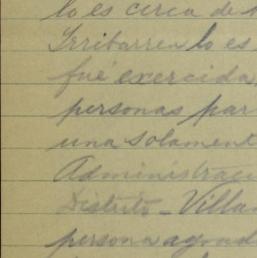 lo es cerca de
Irribarren lo es
fué exercida
personas par
una solament
Administraci
Distrito - Villa
persona agrad